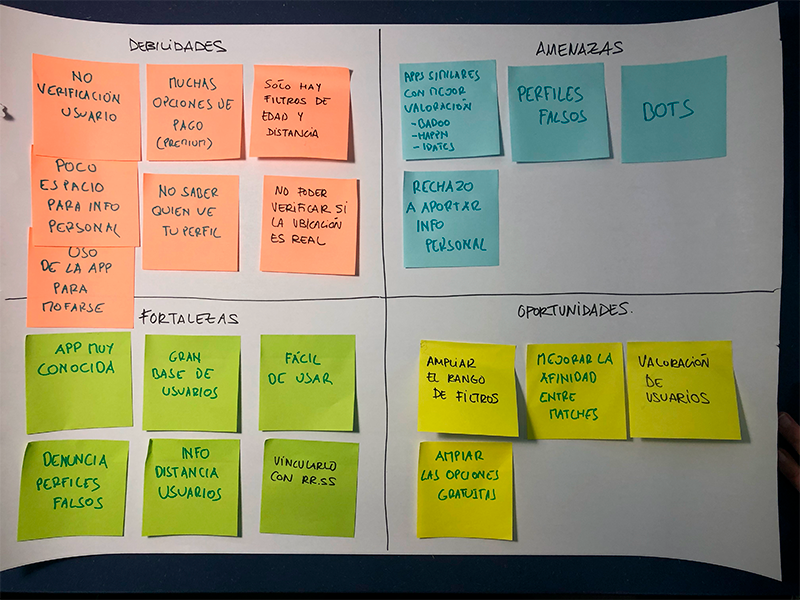 DEBILIDADES
NO
VERIFICACIÓN
USUARIO
MUCHAS
OPCIONES DE
PAGO
(PREMIUM)
SÓLO HAY
FILTROS DE
EDAD Y
DISTANCIA
POCO
ESPACIO
PARA INFO
PERSONAL
NO SABER
QUIEN VE
TU PERFIL
NO PODER
VERIFICAR SI
LA UBICACIÓN
ES REAL
USO
DE LA APP
PARA
MOFARSE
AMENAZAS
APPS SIMILARES
CON MEJOR
VALORACIÓN
-BADOO
-HAPPN
-IDATES
PERFILES
FALSOS
BOTS
RECHAZO
A APORTAR
INFO
PERSONAL
FORTALEZAS
APP MUY
CONOCIDA
GRAN
BASE DE
USUARIOS
FÁCIL
DE USAR
DENUNCIA
PERFILES
FALSOS
INFO
DISTANCIA
USUARIOS
VINCULARLO
CON RR.SS
OPORTUNIDADES.
AMPLIAR
EL RANGO
DE FILTROS
MEJORAR LA
AFINIDAD
ENTRE
MATCHES
VALORACIÓN
DE
USUARIOS
AMPIAR
LAS OPCIONES
GRATUITAS